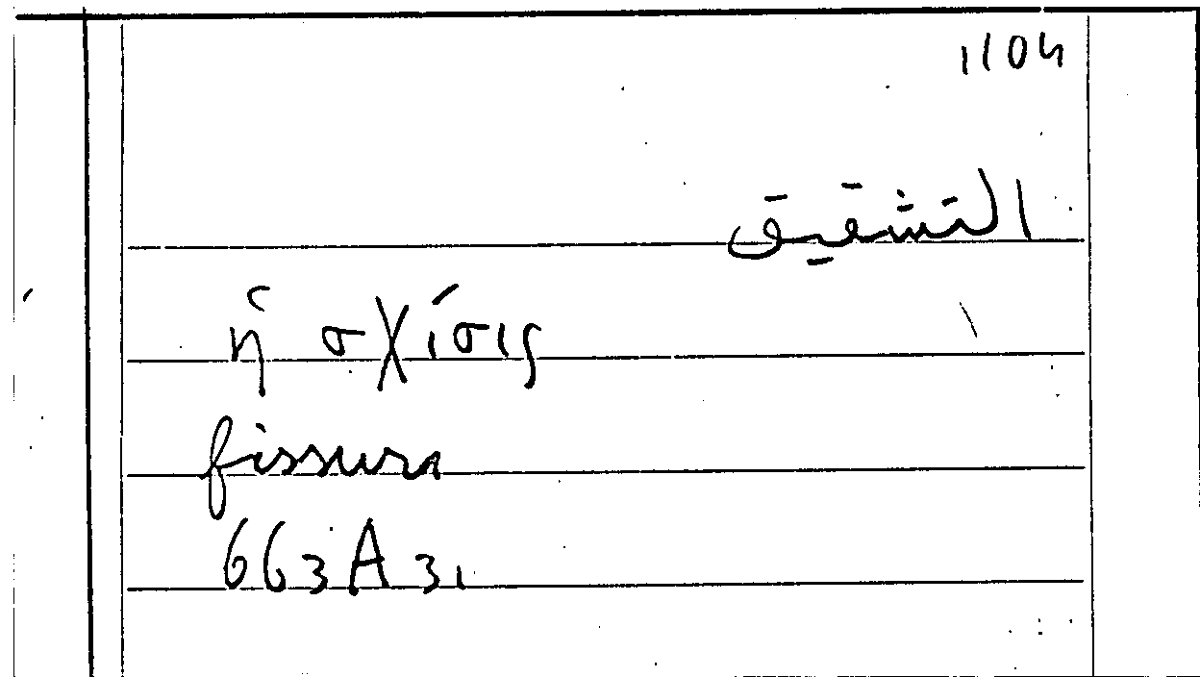 1104
التشقيق
ἡ σχίσις
fissura
663A31